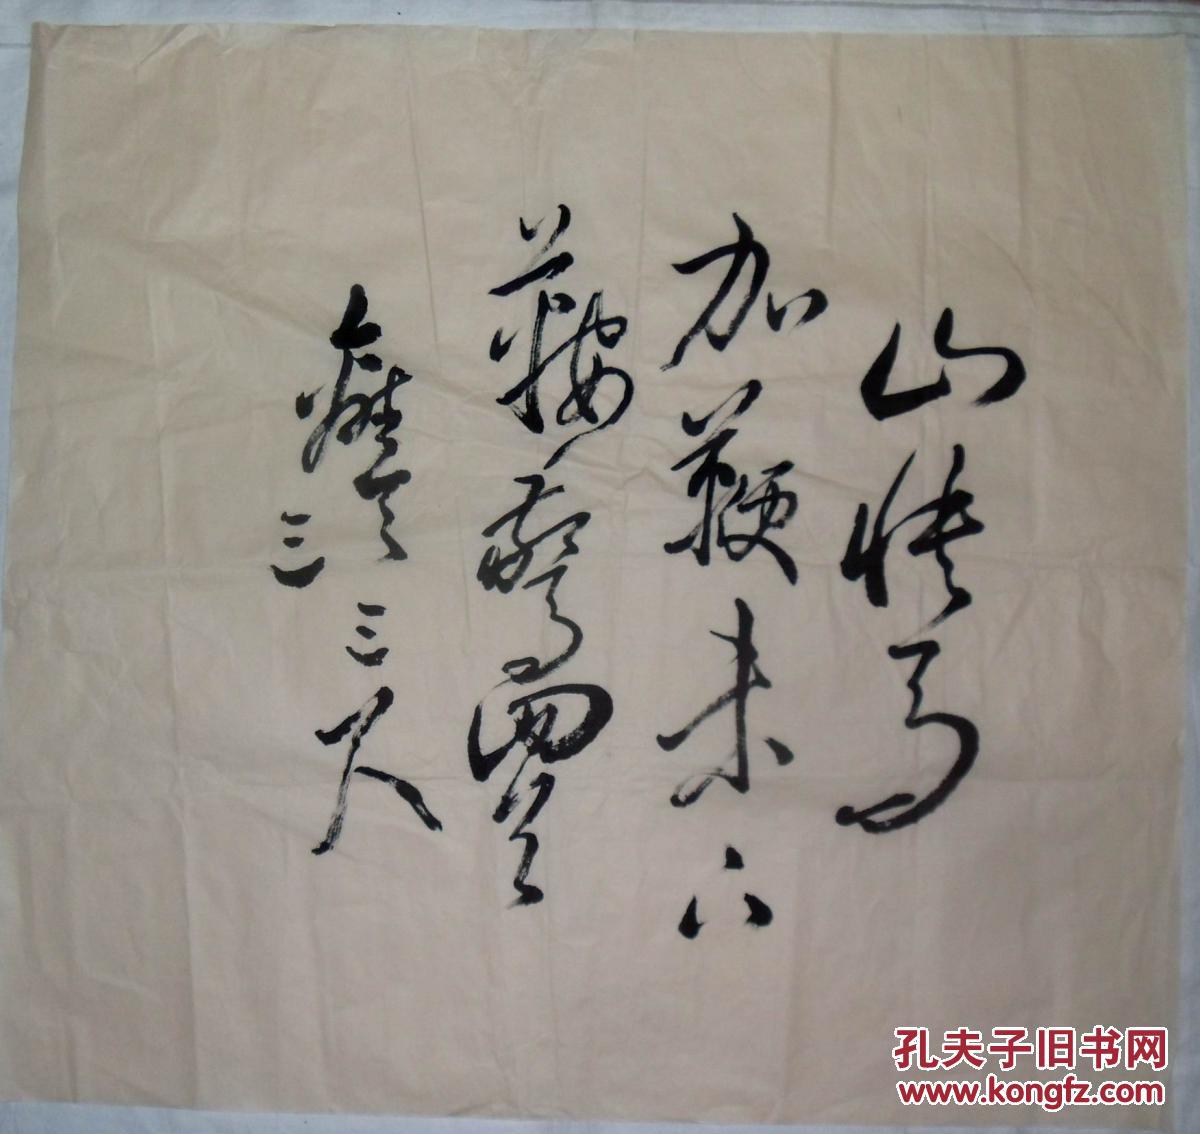 山快马
加鞭未下
鞍惊回首
离天
三三尺
孔夫子旧书网
www.kongfz.com